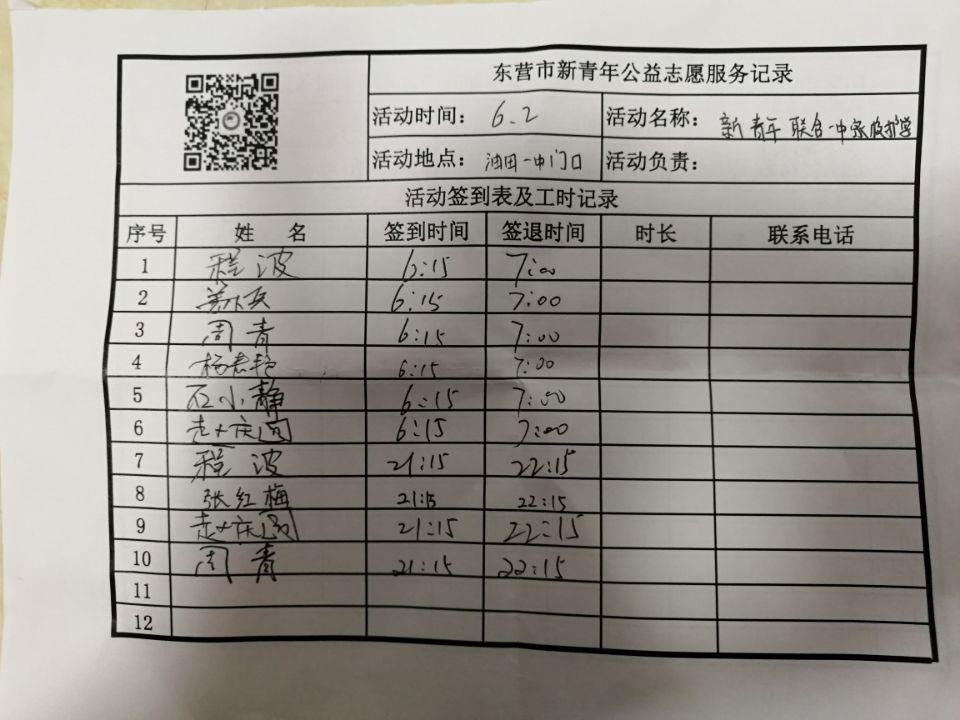 东营市新青年公益志愿服务记录
活动时间： 6.2 活动名称： 新青年联合一中家校护学
活动地点： 油田一中门口 活动负责：
活动签到表及工时记录
序号 姓名 签到时间 签退时间 时长 联系电话
1 程波 6:15 7:00
2 6:15 7:00
3 周青 6:15 7:00
4 6:15 7:00
5 石小静 6:15 7:00
6 赵庆国 6:15 7:00
7 程波 21:15 22:15
8 张红梅 21:15 22:15
9 赵庆国 21:15 22:15
10 周青 21:15 22:15
11
12